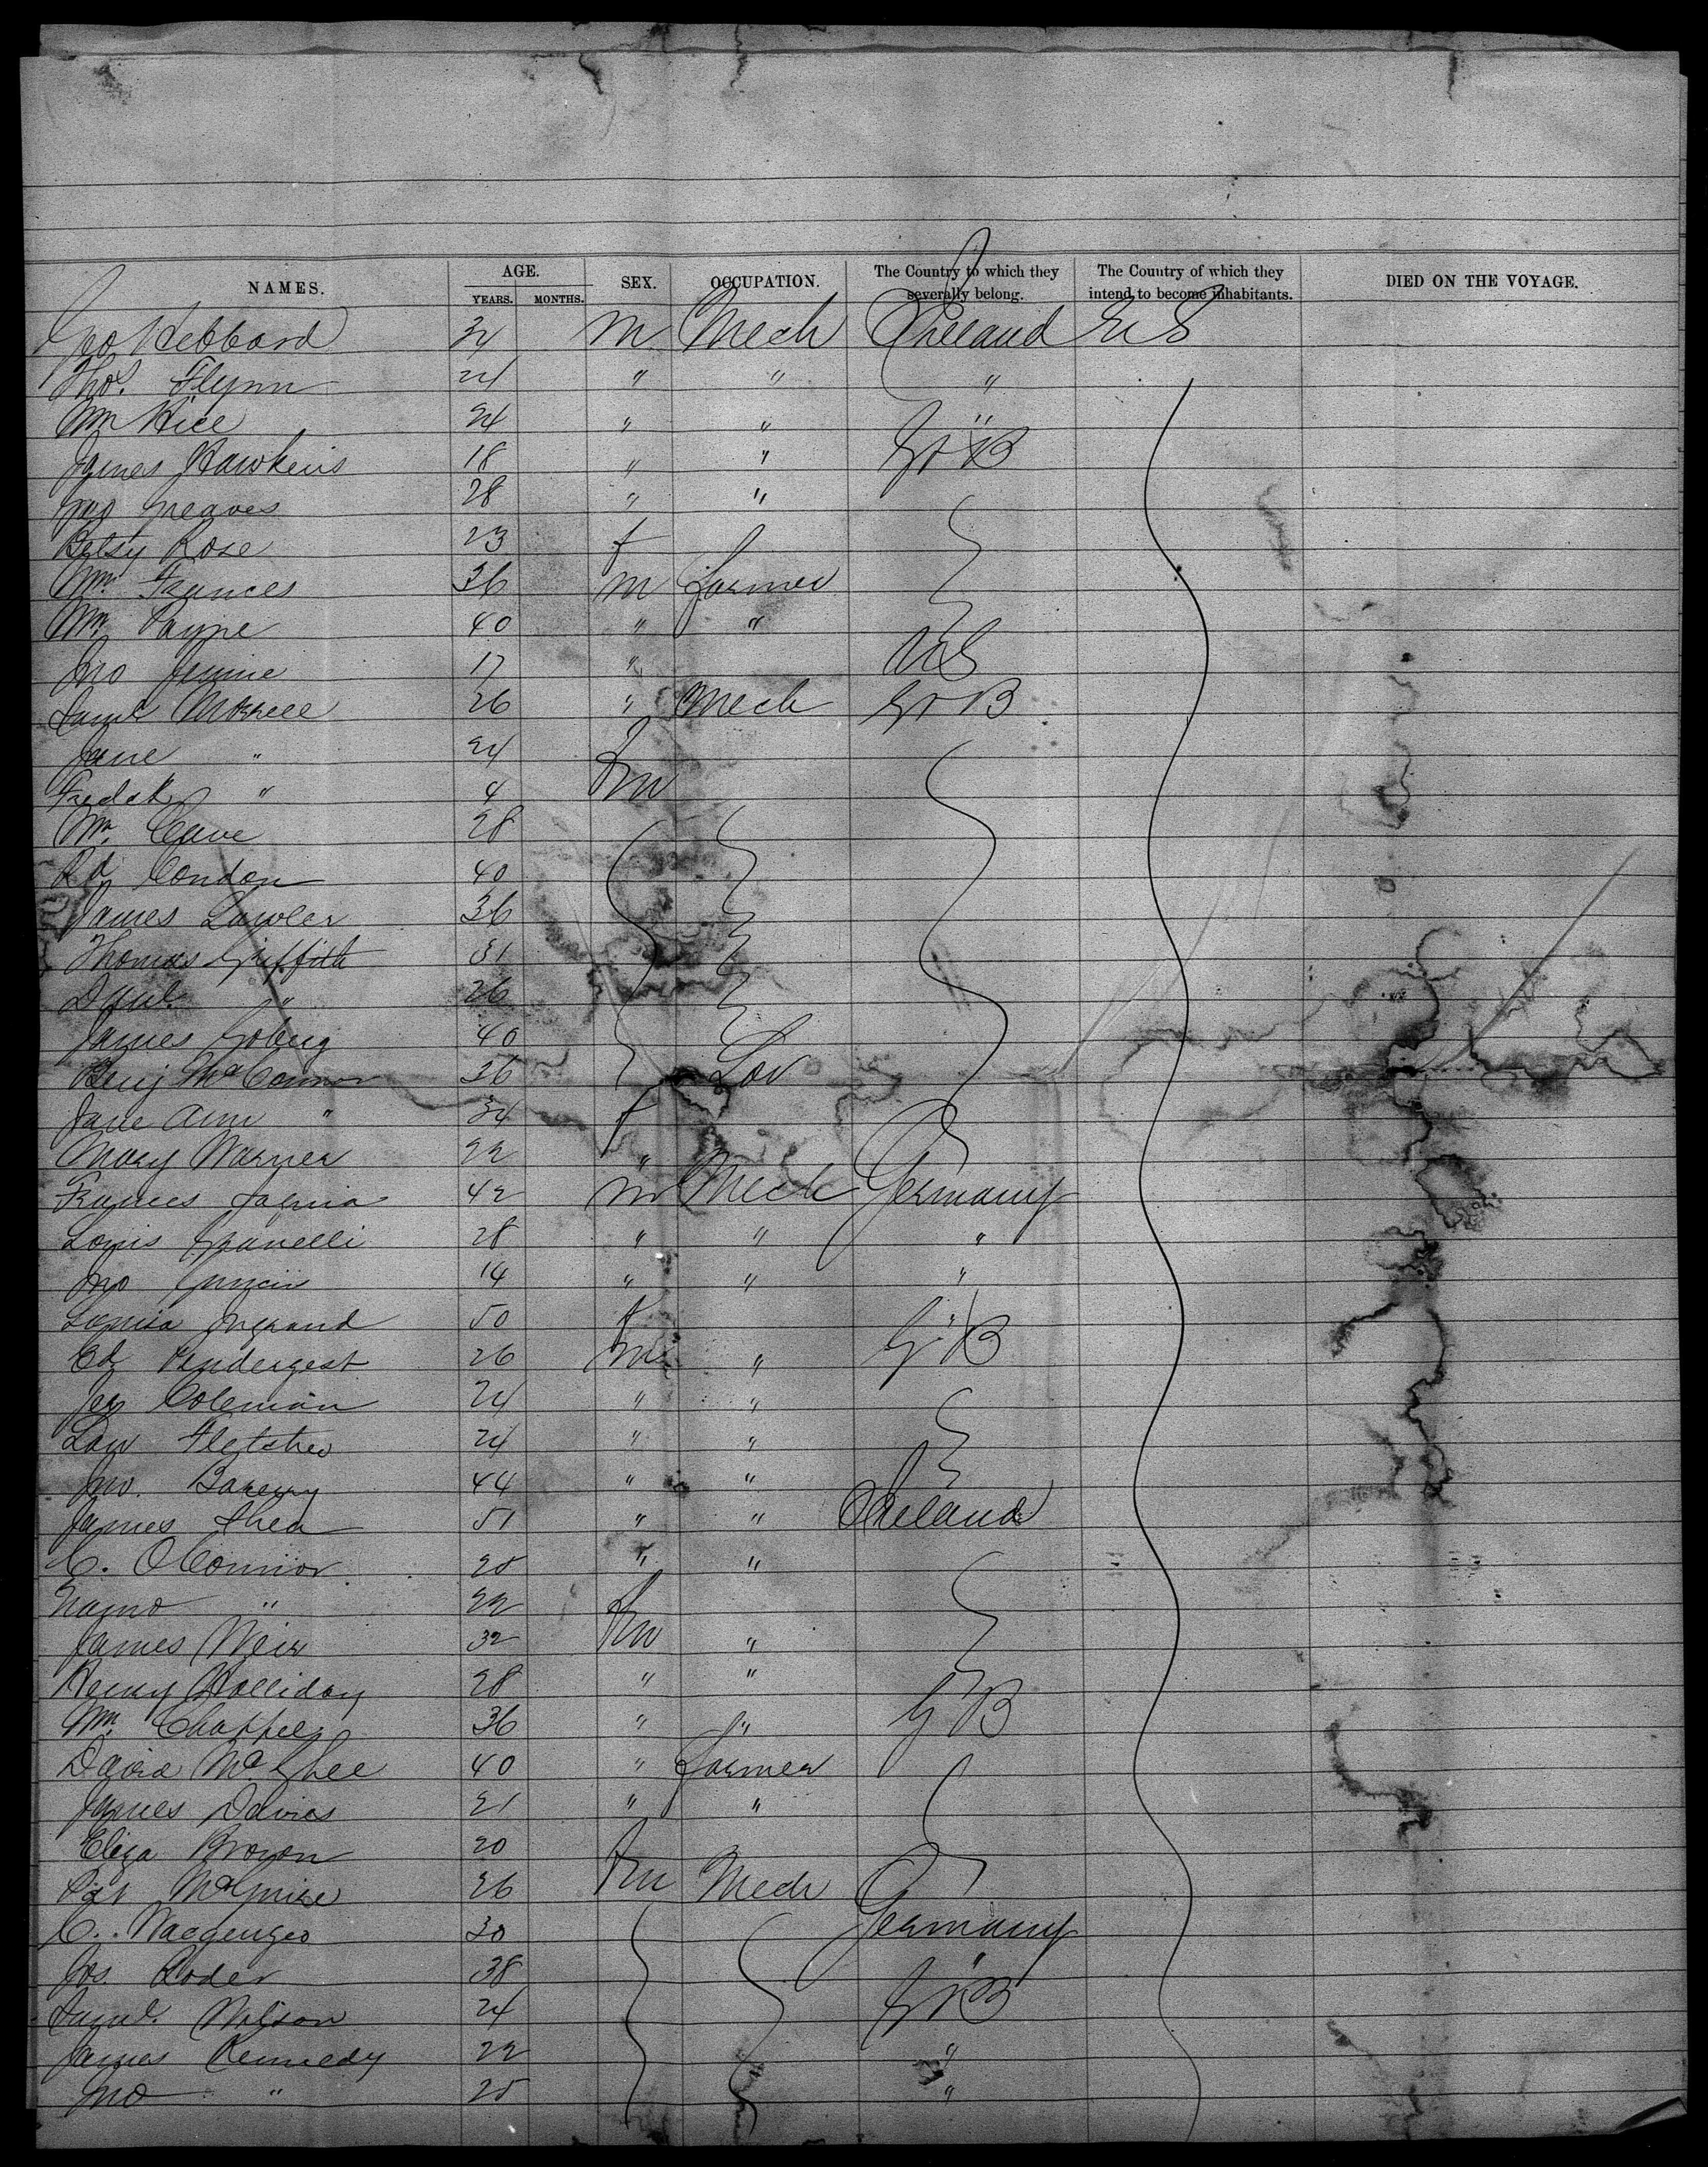 NAMES. AGE. YEARS. MONTHS. SEX. OCCUPATION. The Country to which they severally belong. The Country of which they intend to become inhabitants. DIED ON THE VOYAGE.
Geo Hebbard 34 m Mech Ireland U S
Thos. Flynn 24 " " "
Wm Hice 24 " " "
James Hawkins 18 " " Gt B
Greaves 28 " "
Betsy Rose 23 f
Wm. Frances 36 m farmer
Wm. Payne 40 " "
Jno 17 " US
Saml Morrell 26 " Mech Gt B
Jane " 24 f
Fredck " 4 m
Wm. Cave 28
Rd Condon 40
James Lawler 36
Thomas Griffith 31
Danl. " 26
James 40
Benj McConnor 36 Lav
Jane Ann " 34 f
Mary Warner 22 "
Frances 42 m Mech Germany
Louis Spanelli 28 " " "
Jno 14 " " "
Louisa Ingrand 50 f
Ed Pendergest 26 m " Gt B
Coleman 24 " "
Law Fletcher 24 " "
Jno. 44 " "
James Shea 51 " " Ireland
C. OConnor 25 " "
" 22 f
James Weir 32 m "
Henry Holliday 28 " "
Wm. Chappel 36 " " Gt B
David McGhee 40 " farmer
James Davies 21 " "
Eliza Brown 20 f
Pat McGuire 26 m Mech
C. 30 Germany
Jos Roder 38 "
Saml. Wilson 24 Gt B
James Kennedy 22 "
Jno " 25 "